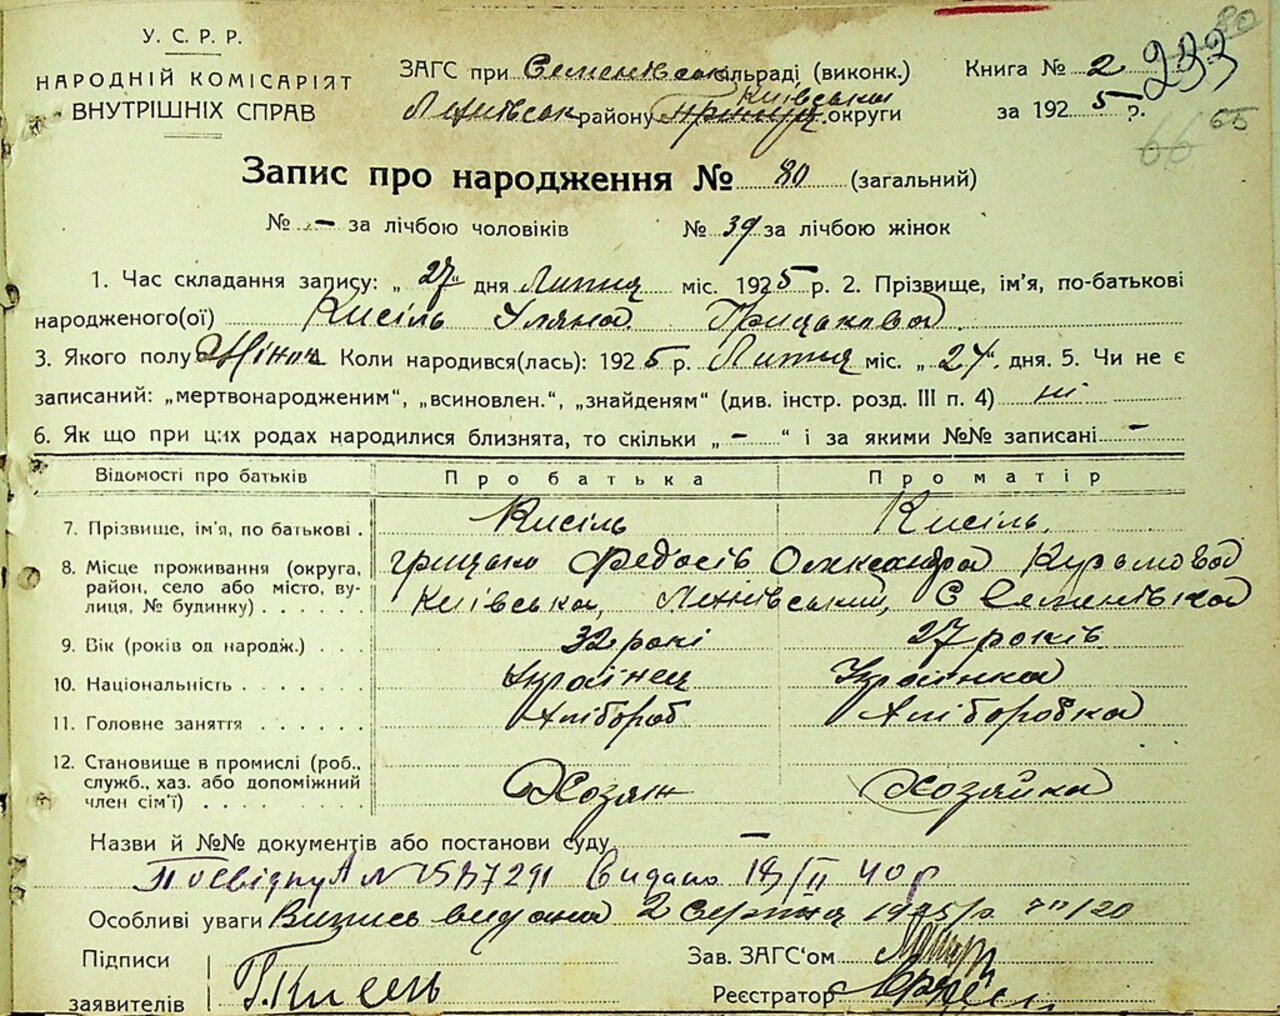 У. С. Р. Р.
НАРОДНІЙ КОМІСАРІЯТ
ВНУТРІШНІХ СПРАВ
ЗАГС при Семенівськ сільраді (виконк.)
району Київська округи
Книга № 2
за 1925 р.
233
80
66
65
Запис про народження № 80 (загальний)
№ - за лічбою чоловіків № 39 за лічбою жінок
1. Час складання запису: „27“ дня Липня міс. 1925 р. 2. Прізвище, ім'я, по-батькові
народженого(ої) Кисіль Уляна Грицькова
3. Якого полу Жіноч Коли народився(лась): 1925 р. Липня міс. „24“ дня. 5. Чи не є
записаний: „мертвонародженим“, „всиновлен.“, „знайденям“ (див. інстр. розд. III п. 4) ні
6. Як що при цих родах народилися близнята, то скільки „-“ і за якими №№ записані -
Відомості про батьків Про батька Про матір
7. Прізвище, ім'я, по батькові . Кисіль Кисіль
грицько Федосів Олександра
8. Місце проживання (округа, район, село або місто, вулиця, № будинку) . . . . . Київська, С Семенівка
9. Вік (років од народж.) . . . 32 рокі 27 років
10. Національність . . . . . . Українец Українка
11. Головне заняття . . . . . Хлібороб Хліборобка
12. Становище в промислі (роб., служб., хаз. або допоміжний член сім'ї) . . . . Хозяін Хозяйка
Назви й №№ документів або постанови суду -
Видано 18/II 40 р
Особливі уваги Випись видана 2 Серпня 1925 р. 20
Підписи
заявителів Г. Кисель
Зав. ЗАГС'ом
Реєстратор